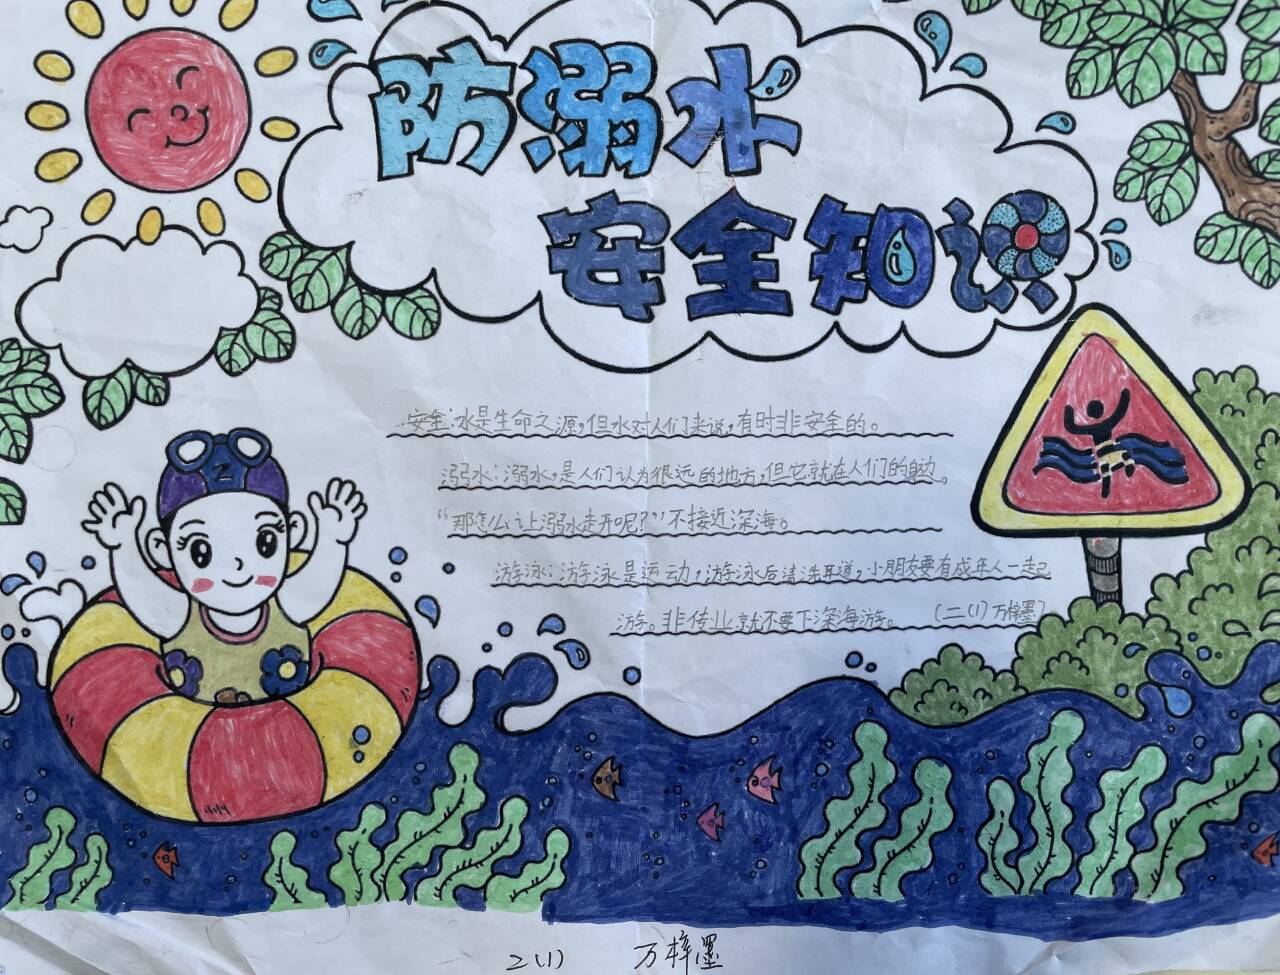 防溺水
安全知识
安全:水是生命之源,但水对人们来说,有时非安全的。
溺水:溺水,是人们认为很远的地方,但它就在人们的身边。
“那怎么让溺水走开呢?”不接近深海。
游泳:游泳是运动,游泳后清洗耳道,小朋友要有成年人一起
游。非传业就不要下深海游。 (二(1)万梓墨)
Z
2(1) 万梓墨